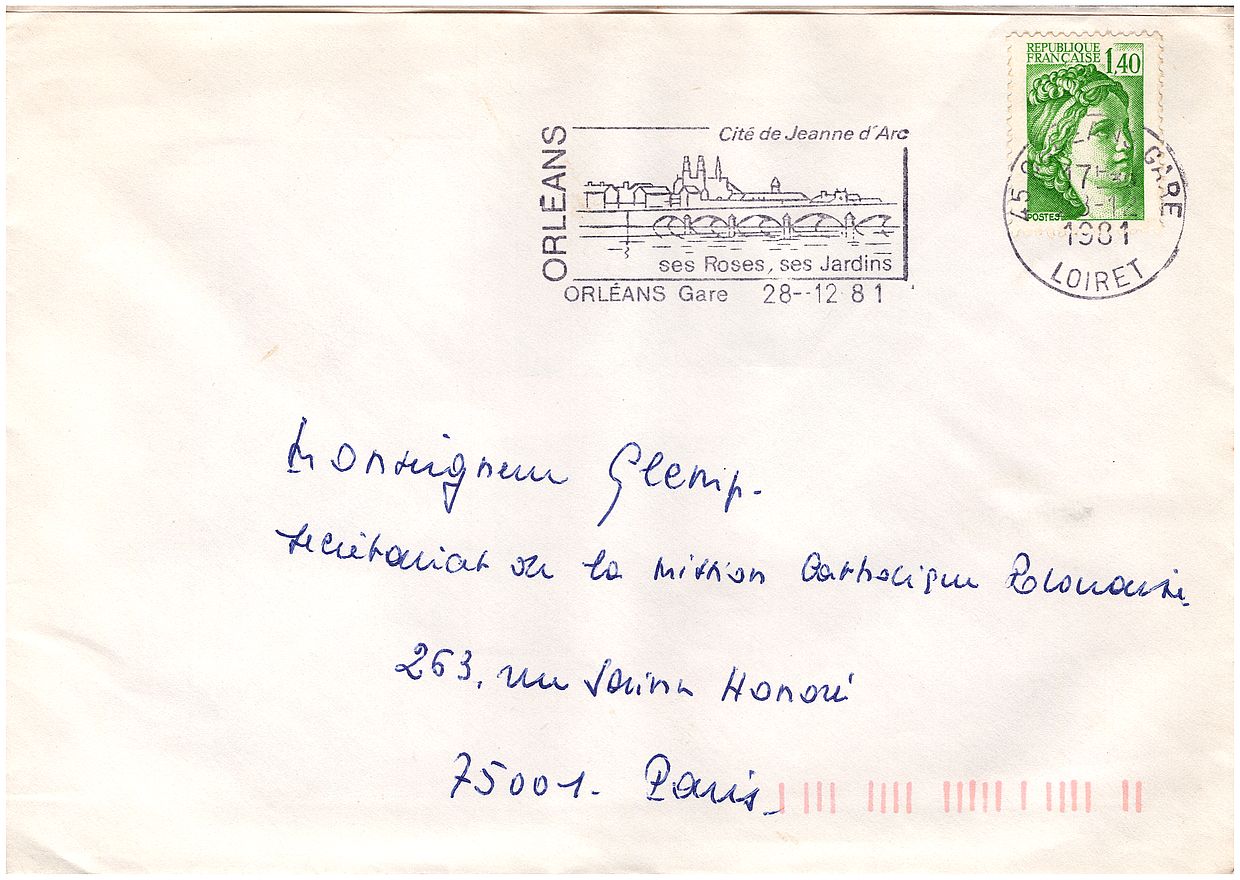 REPUBLIQUE
FRANÇAISE 1,40
POSTES
ORLÉANS
Cité de Jeanne d'Arc
ses Roses, ses Jardins
ORLÉANS Gare 28--12 81
45 GARE
17
1981
LOIRET
Monseigneur
Secrétariat de la Mission Catholique Polonaise
263, rue Saint Honoré
75001. Paris